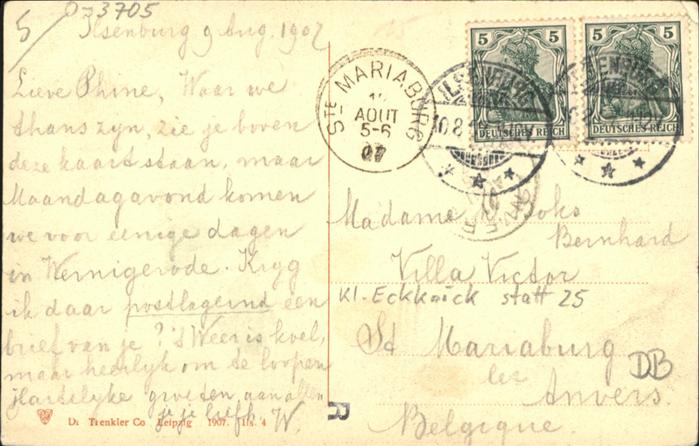 5/ 0-3705
Ilsenburg 9 Aug. 1907
Lieve Phine, Waar we
thans zyn, zie je boven
deze kaart staan, maar
Maandagavond komen
we voor eenige dagen
in Wernigerode. Kryg
ik daar postlagernd een
brief van je? 't Weer is koel,
maar heerlyk om te loopen
Hartelyke groeten aan allen
je liefh. W.
D. Trenkler Co Leipzig 1907. Ils. 4
STE MARIABURG
AOUT
5-6
07
ILSENBURG
10.8
5 5
DEUTSCHES REICH
5 5
DEUTSCHES REICH
Madame Joks
Bernhard
Villa Victor
Kl. Eckkoick statt 25
St Mariaburg
lez
Anvers.
Belgique.
DB
R